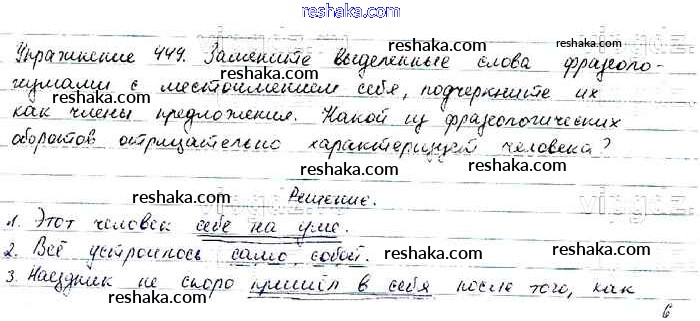 reshaka.com
Упражнение 449. Замените выделенные слова фразеоло-
reshaka.com reshaka.com
гизмами с местоимением себя, подчеркните их
как члены предложения. Какой из фразеологических
reshaka.com reshaka.com
оборотов отрицательно характеризует человека?
reshaka.com
Решение.
reshaka.com reshaka.com
1. Этот человек себе на уме.
2. Всё устроилось само собой.
reshaka.com reshaka.com
3. Наездник не скоро пришёл в себя после того, как
reshaka.com
6